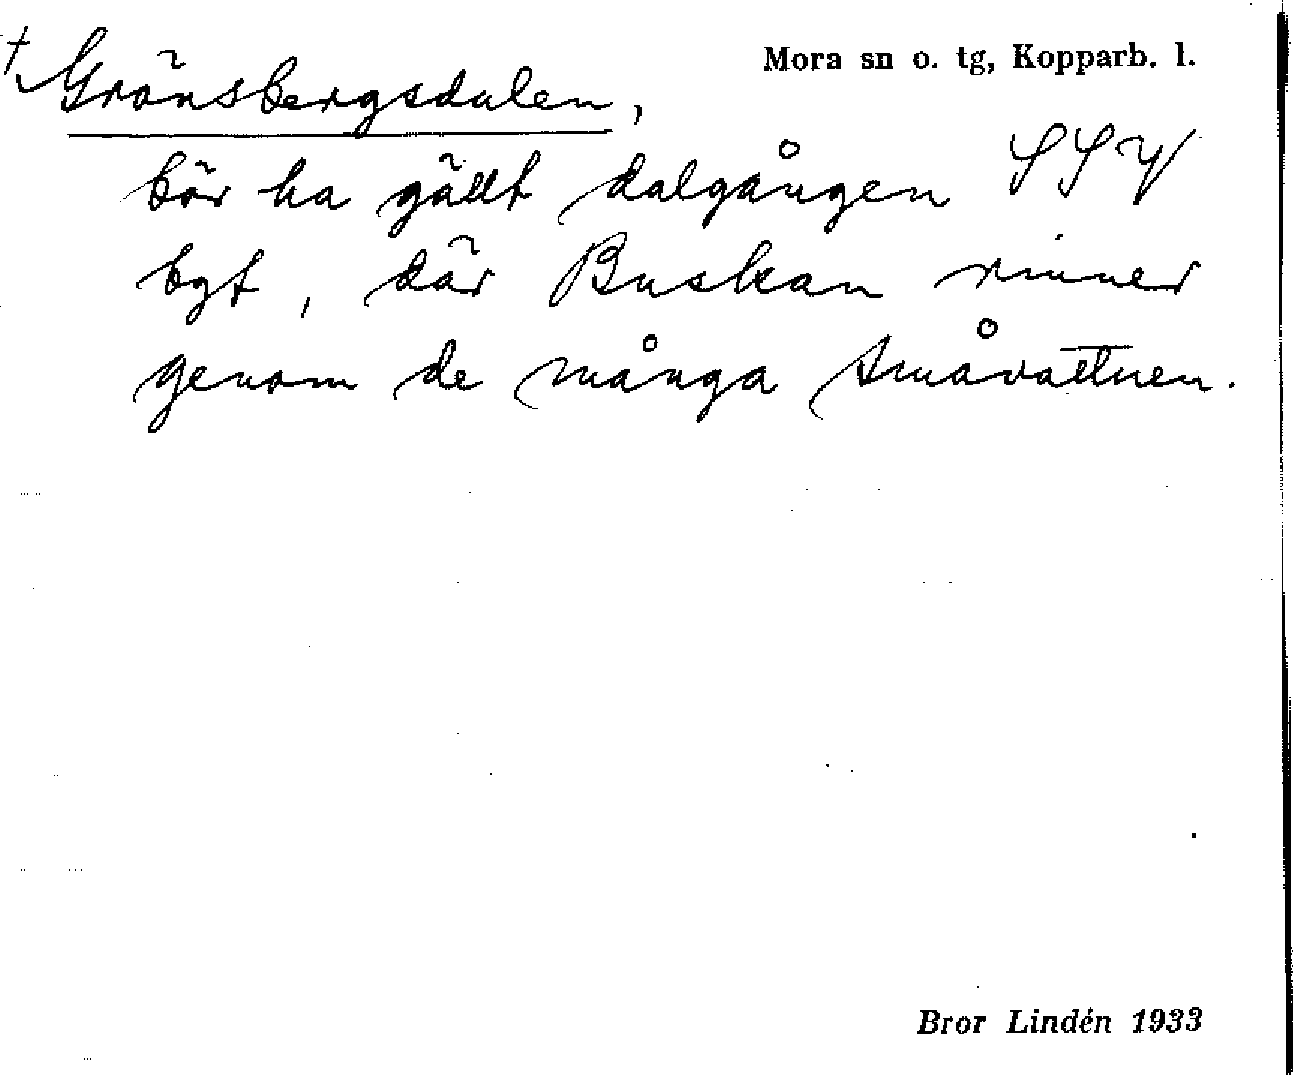 Mora sn o. tg, Kopparb. l.
† Grönsbergsdalen,
bör ha gällt dalgången SSV
bgt, där Buskan rinner
genom de många småvattnen.
Bror Lindén 1933